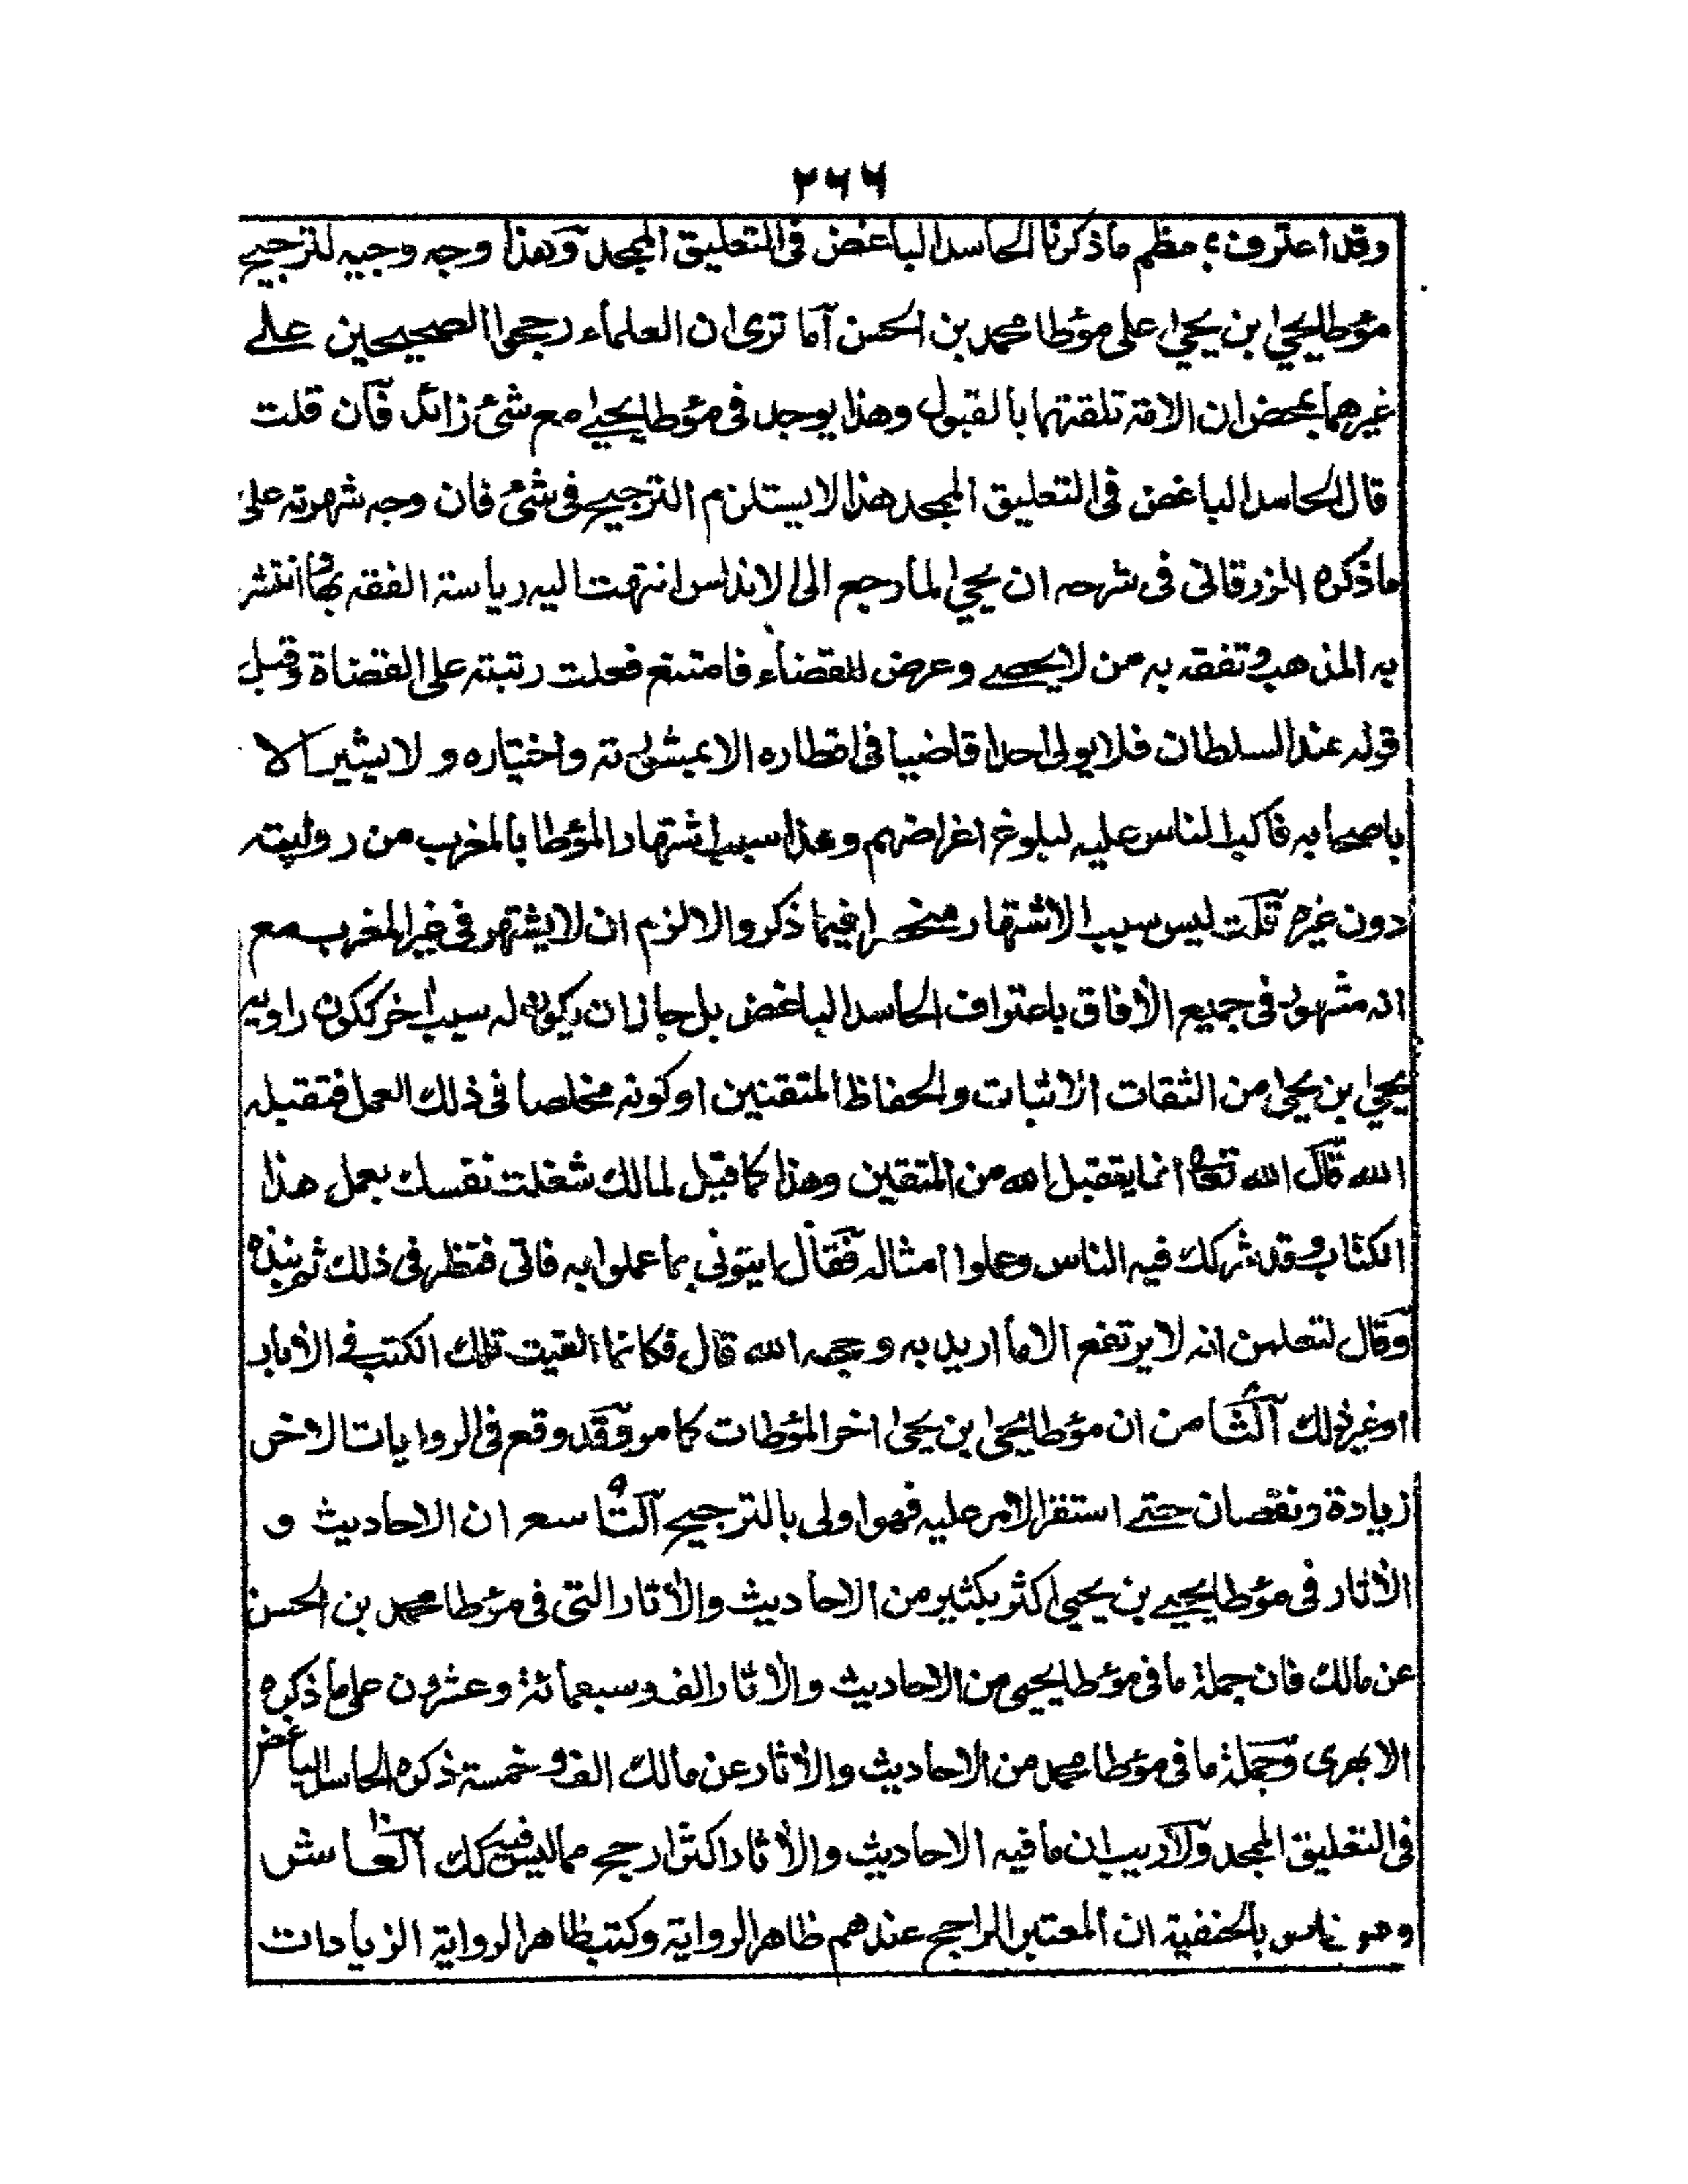 ٢٦٦
وقد اعترف بمعظم ماذكرنا الحاسد الباغض فى التعليق الممجد وهذا وجه وجيه لترجيح
مؤطا يحيى بن يحيى على مؤطا محمد بن الحسن آما ترى ان العلماء رجحوا الصحيحين على
غيرهما بمحض ان الامة تلقتهما بالقبول وهذا يوجد فى مؤطا يحيى مع شئ زائد فآن قلت
قال الحاسد الباغض فى التعليق الممجد هذا لا يستلزم الترجيح فى شئ فان وجه شهرته على
ماذكره الزرقانى فى شرحه ان يحيى لما رجع الى الاندلس انتهت اليه رياسة الفقه بها وانتشر
به المذهب وتفقه به من لا يحصى وعرض للقضاء فامتنع فعلت رتبته على القضاة وقبل
قوله عند السلطان فلا يولى احدا قاضيا فى اقطاره الا بمشورته واختياره و لا يشير الا
باصحابه فاكب الناس عليه لبلوغ اغراضهم وهذا سبب اشتهار المؤطا بالمغرب من روايته
دون غيره قلت ليس سبب الاشتهار منحصرا فيما ذكر والا لزم ان لا يشتهر فى غير المغرب مع
انه مشهور فى جميع الأفاق باعتراف الحاسد الباغض بل جاز ان يكون له سبب أخر ككون راويه
يحيى بن يحيى من الثقات الاثبات والحفاظ المتقنين او كونه مخلصا فى ذلك العمل فتقبله
الله قال الله تعالى انما يتقبل الله من المتقين وهذا كما قيل لمالك شغلت نفسك بعمل هذا
الكتاب وقد شركك فيه الناس وعملوا امثاله فقال ايتونى بما عملوا به فاتى فنظر فى ذلك ثم نبذه
وقال لتعلمن انه لا يرتفع الا ما اريد به وجه الله قال فكانما القيت تلك الكتب فى الأبار
او غير ذلك آلثامن ان مؤطا يحيى بن يحيى اخر المؤطات كما مر وقد وقع فى الروايات الاخر
زيادة ونقصان حتى استقر الامر عليه فهو اولى بالترجيح آلتاسع ان الاحاديث و
الأثار فى مؤطا يحيى بن يحيى اكثر بكثير من الاحاديث والأثار التى فى مؤطا محمد بن الحسن
عن مالك فان جملة ما فى مؤطا يحيى من الاحاديث والأثار الف وسبعمائة وعشرون على ما ذكره
الابهرى وجملة ما فى مؤطا محمد من الاحاديث والأثار عن مالك الف وخمسة ذكره الحاسد الباغض
فى التعليق الممجد ولا ريب ان ما فيه الاحاديث والأثار اكثر ارجح مما ليس فيه كك آلعاشر
وهو خاص بالحنفية ان المعتبر الراجح عندهم ظاهر الرواية وكتب ظاهر الرواية الزيادات